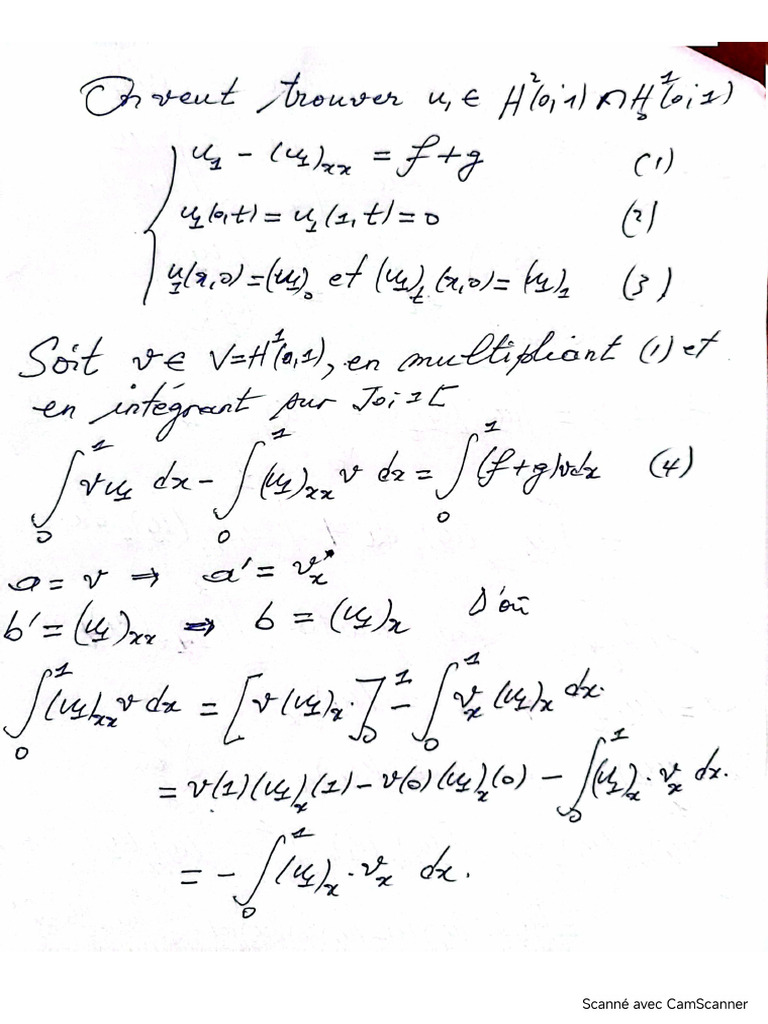 On veut trouver u₁ ∈ H²(0;1) ∩ H₀¹(0;1)
u₁ - (u₁)ₓₓ = f + g (1)
u₁(0,t) = u₁(1,t) = 0 (2)
u₁(x,0) = (u₁)₀ et (u₁)ₜ(x,0) = (u₁)₁ (3)
Soit v ∈ V = H¹(0,1), en multipliant (1) et
en intégrant sur ]0;1[
∫₀¹ v u₁ dx - ∫₀¹ (u₁)ₓₓ v dx = ∫₀¹ (f+g)v dx (4)
a = v ⇒ a' = vₓ
b' = (u₁)ₓₓ ⇒ b = (u₁)ₓ D'où
∫₀¹ (u₁)ₓₓ v dx = [v(u₁)ₓ.]₀¹ - ∫₀¹ vₓ (u₁)ₓ dx.
= v(1)(u₁)ₓ(1) - v(0)(u₁)ₓ(0) - ∫₀¹ (u₁)ₓ . vₓ dx.
= - ∫₀¹ (u₁)ₓ . vₓ dx.
Scanné avec CamScanner